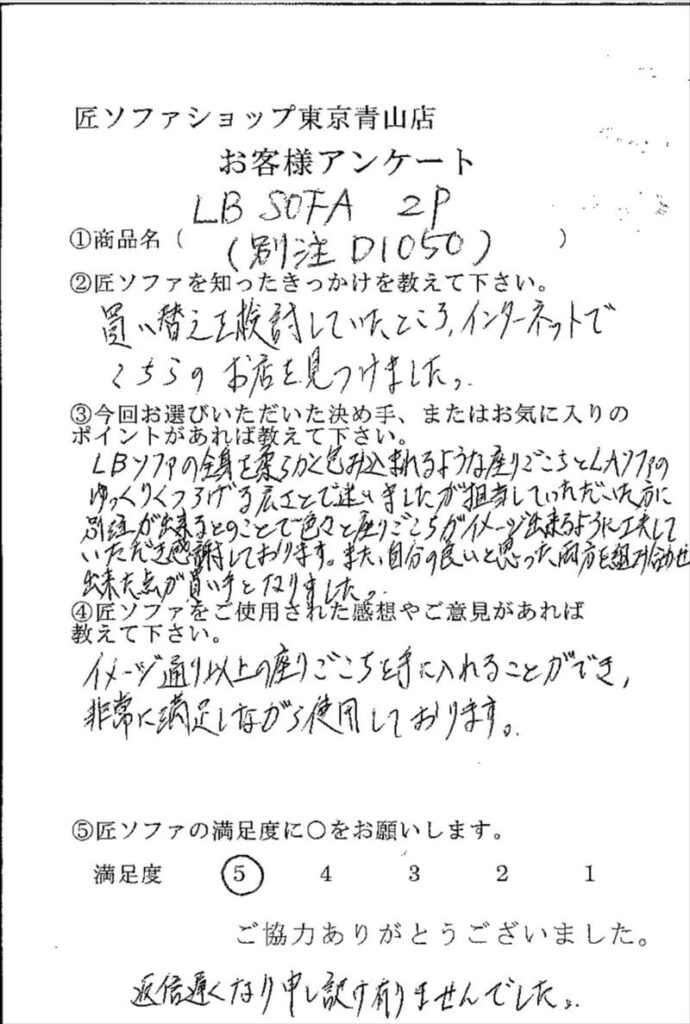 匠ソファショップ東京青山店
お客様アンケート
LB SOFA 2P
①商品名(
(別注 D1050)
)
②匠ソファを知ったきっかけを教えて下さい。
買い替えを検討していたところ、インターネットで
こちらのお店を見つけました。
③今回お選びいただいた決め手、またはお気に入りの
ポイントがあれば教えて下さい。
LBソファの全身を柔らかく包み込まれるような座りごこちとLAソファの
ゆっくりくつろげる広さとで迷いましたが担当していただいた方に
別注が出来るとのことで色々と座りごこちがイメージ出来るように工夫して
いただき感謝しております。また、自分の良いと思った両方を組み合わせ
出来た点が買い手となりました。
④匠ソファをご使用された感想やご意見があれば
教えて下さい。
イメージ通り以上の座りごこちを手に入れることができ,
非常に満足しながら使用しております。
⑤匠ソファの満足度に○をお願いします。
満足度 5 4 3 2 1
ご協力ありがとうございました。
返信遅くなり申し訳有りませんでした。